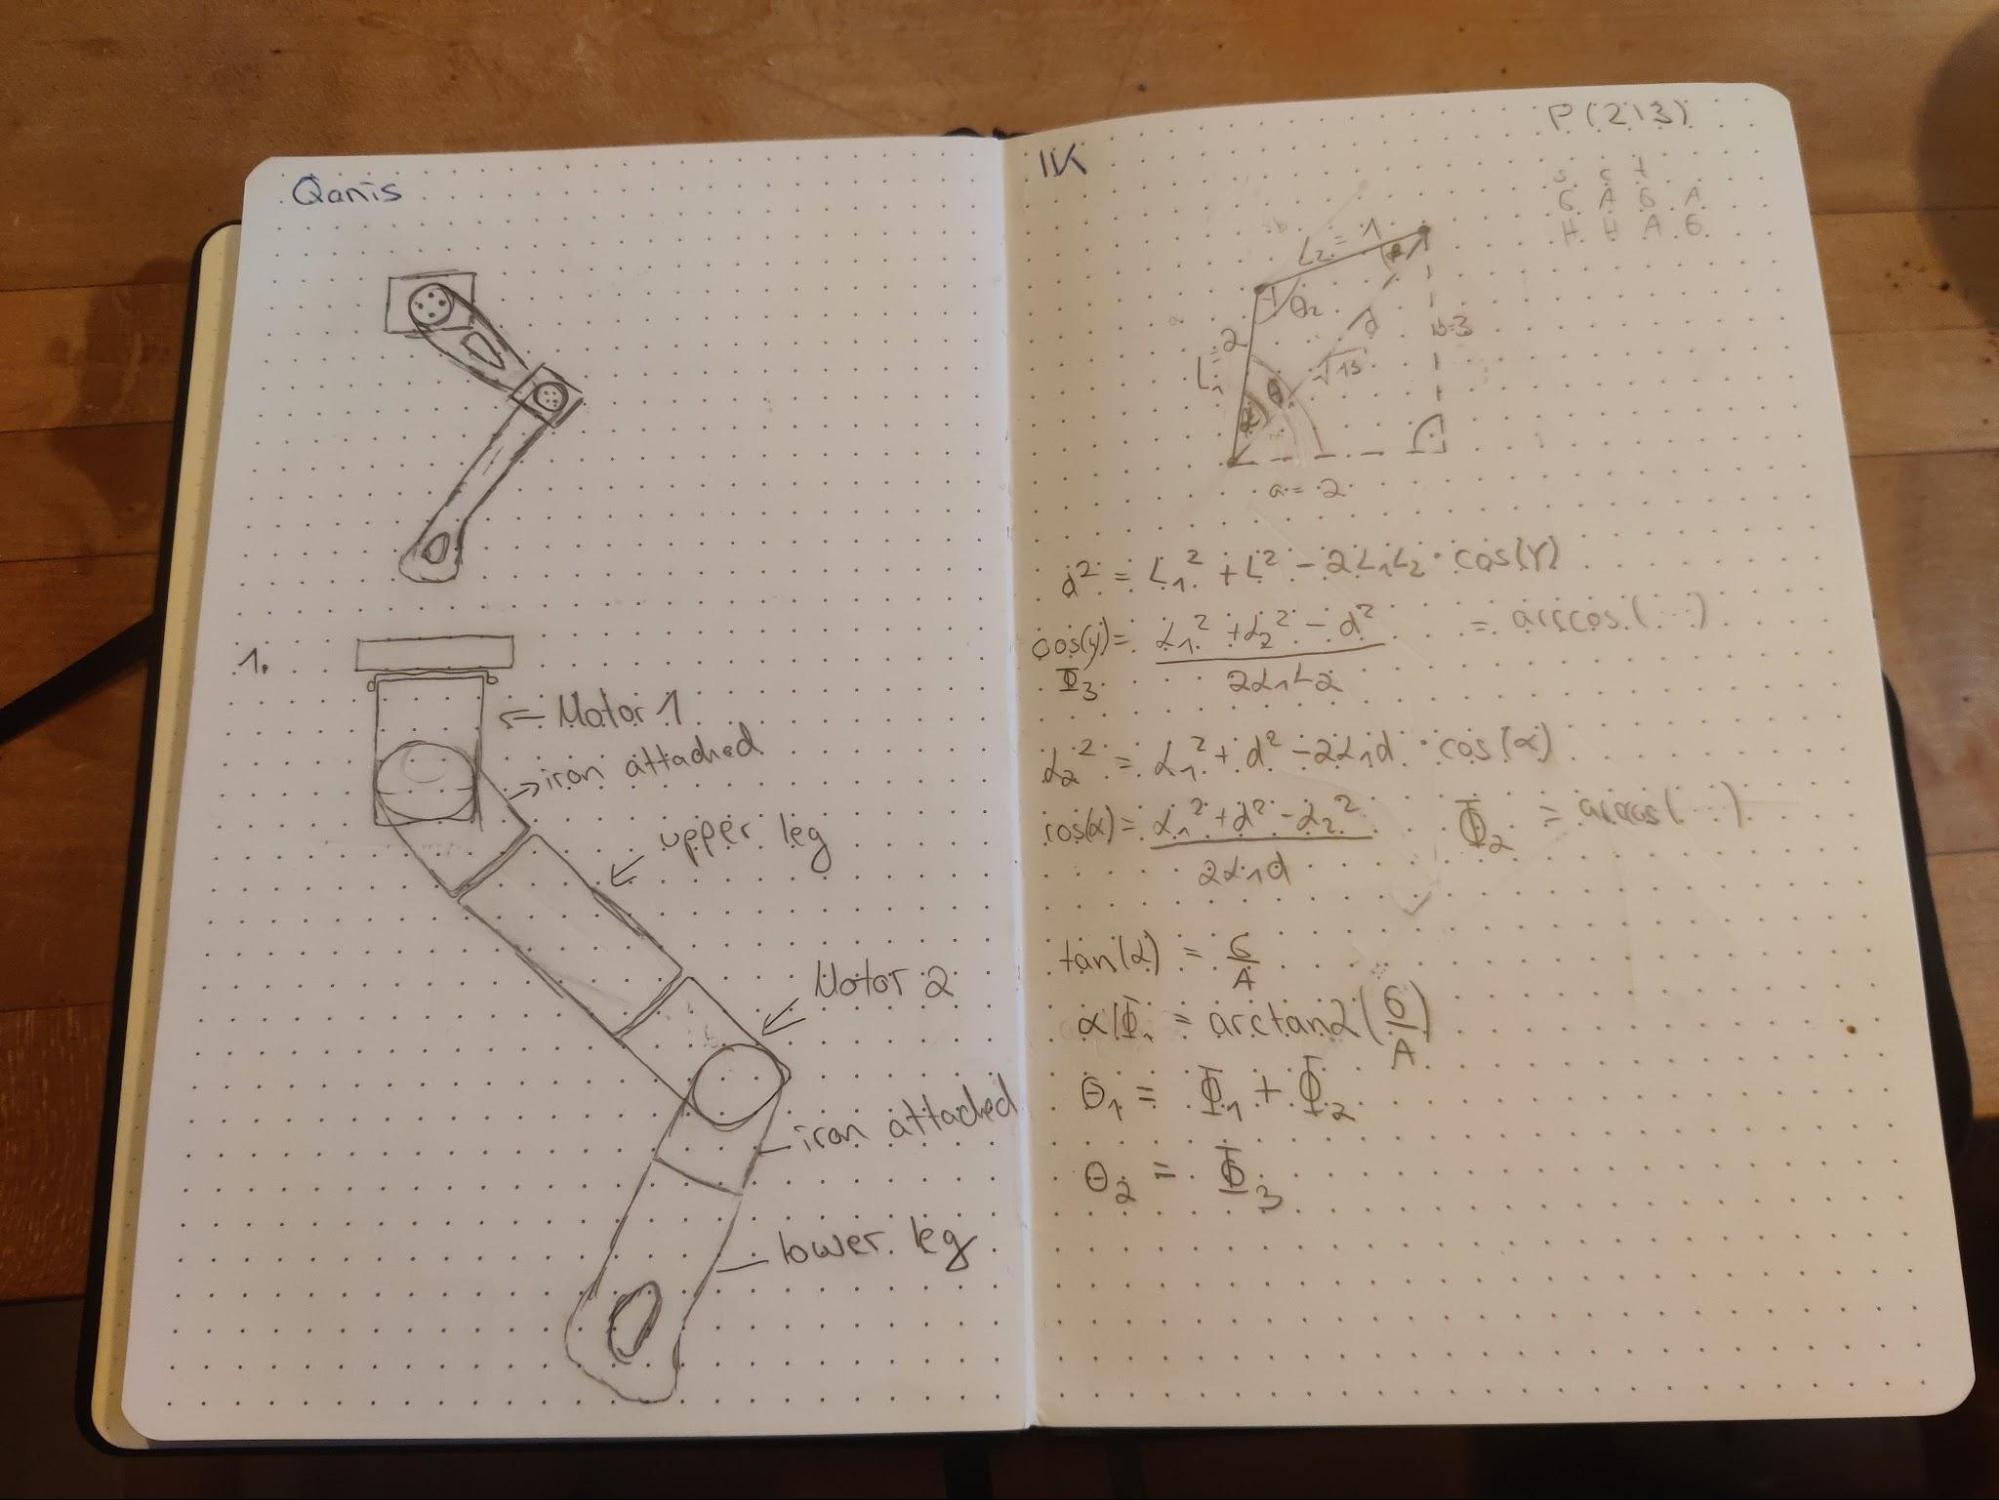 Qanis
1.
Motor 1
iron attached
upper leg
Motor 2
iron attached
lower leg
IK
P(2|3)
s c t
G A G A
H H A G
L₂ = 1
θ₂
d
b=3
L₁ = 2
√13
θ₁
α
a = 2
d² = L₁² + L² - 2L₁L₂ · cos(γ)
cos(γ) = (L₁² + L₂² - d²) / (2L₁L₂) = arccos(...)
Φ₃
L₂² = L₁² + d² - 2L₁d · cos(α)
cos(α) = (L₁² + d² - L₂²) / (2L₁d) Φ₂ = arccos(...)
tan(α) = G/A
α|Φ₁ = arctan2(G/A)
θ₁ = Φ₁ + Φ₂
θ₂ = Φ₃